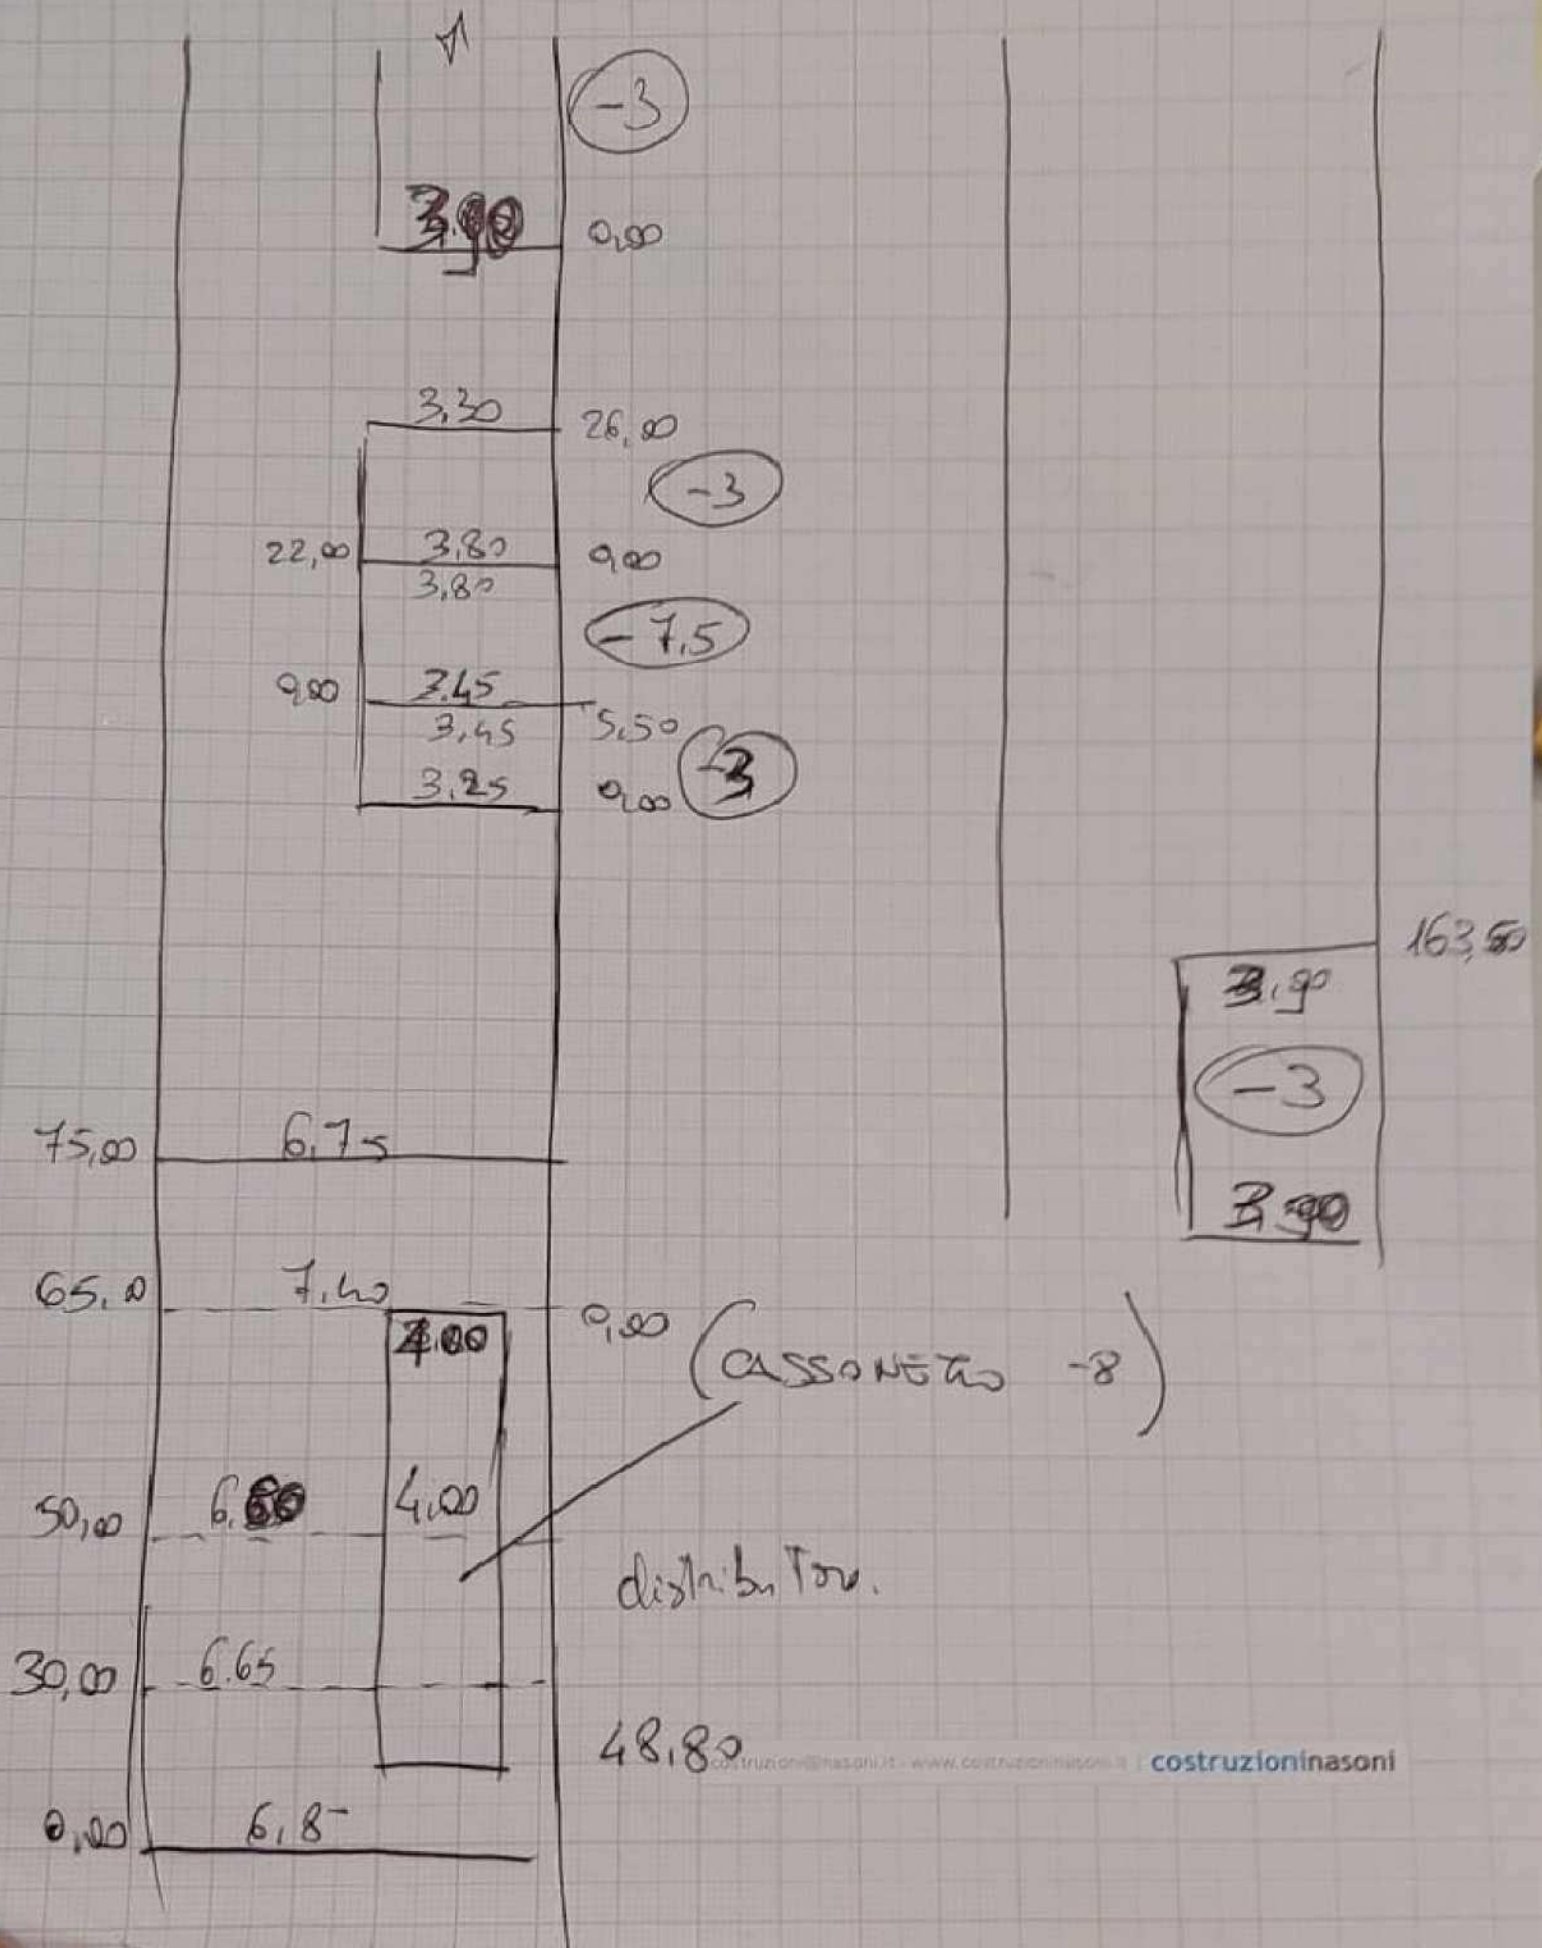 -3
3.90
0,00
3,30
26,00
-3
22,00
3,80
0,00
3,80
-7,5
0,00
3.45
3,45
5,50
-3
3,25
0,00
163,50
3,90
-3
3.90
75,00
6,75
65,00
7,40
0,00
4.00
(CASSONETTO -8)
50,00
4,00
distributore.
30,00
6.65
48,80
costruzioni@nasoni.it - www.costruzioninasoni.it | costruzioninasoni
0,00
6,85